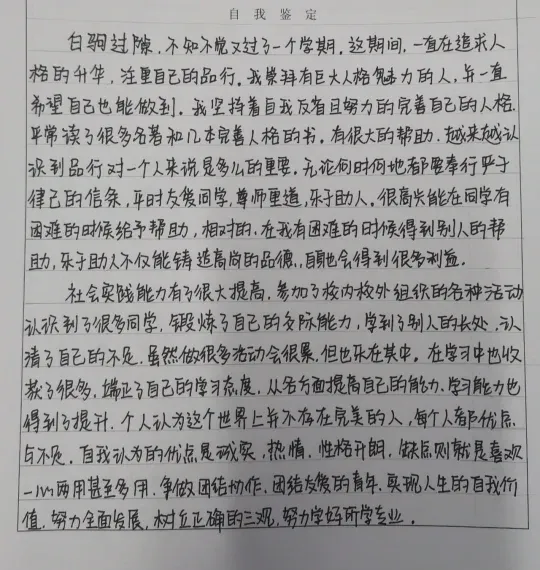 自我鉴定
白驹过隙，不知不觉又过了一个学期。这期间，一直在追求人
格的升华，注重自己的品行。我崇拜有巨大人格魅力的人，并一直
希望自己也能做到。我坚持着自我反省且努力的完善自己的人格.
平常读了很多名著和几本完善人格的书。有很大的帮助.越来越认
识到品行对一个人来说是多么的重要。无论何时何地都要奉行严于
律己的信条，平时友爱同学，尊师重道，乐于助人。很高兴能在同学有
困难的时候给予帮助，相对的.在我有困难的时候得到别人的帮
助，乐于助人不仅能铸造高尚的品德，自己也会得到很多利益.
社会实践能力有了很大提高.参加了校内校外组织的各种活动
认识到了很多同学，锻炼了自己的交际能力，学到了别人的长处.认
清了自己的不足.虽然做很多活动会很累.但也乐在其中。在学习中也收
获了很多，端正了自己的学习态度，从各方面提高自己的能力.学习能力也
得到了提升.个人认为这个世界上并不存在完美的人，每个人都有优点
与不足.自我认为的优点是诚实，热情，性格开朗，缺点则就是喜欢
一心两用甚至多用.争做团结协作.团结友爱的青年.实现人生的自我价
值，努力全面发展，树立正确的三观，努力学好所学专业。